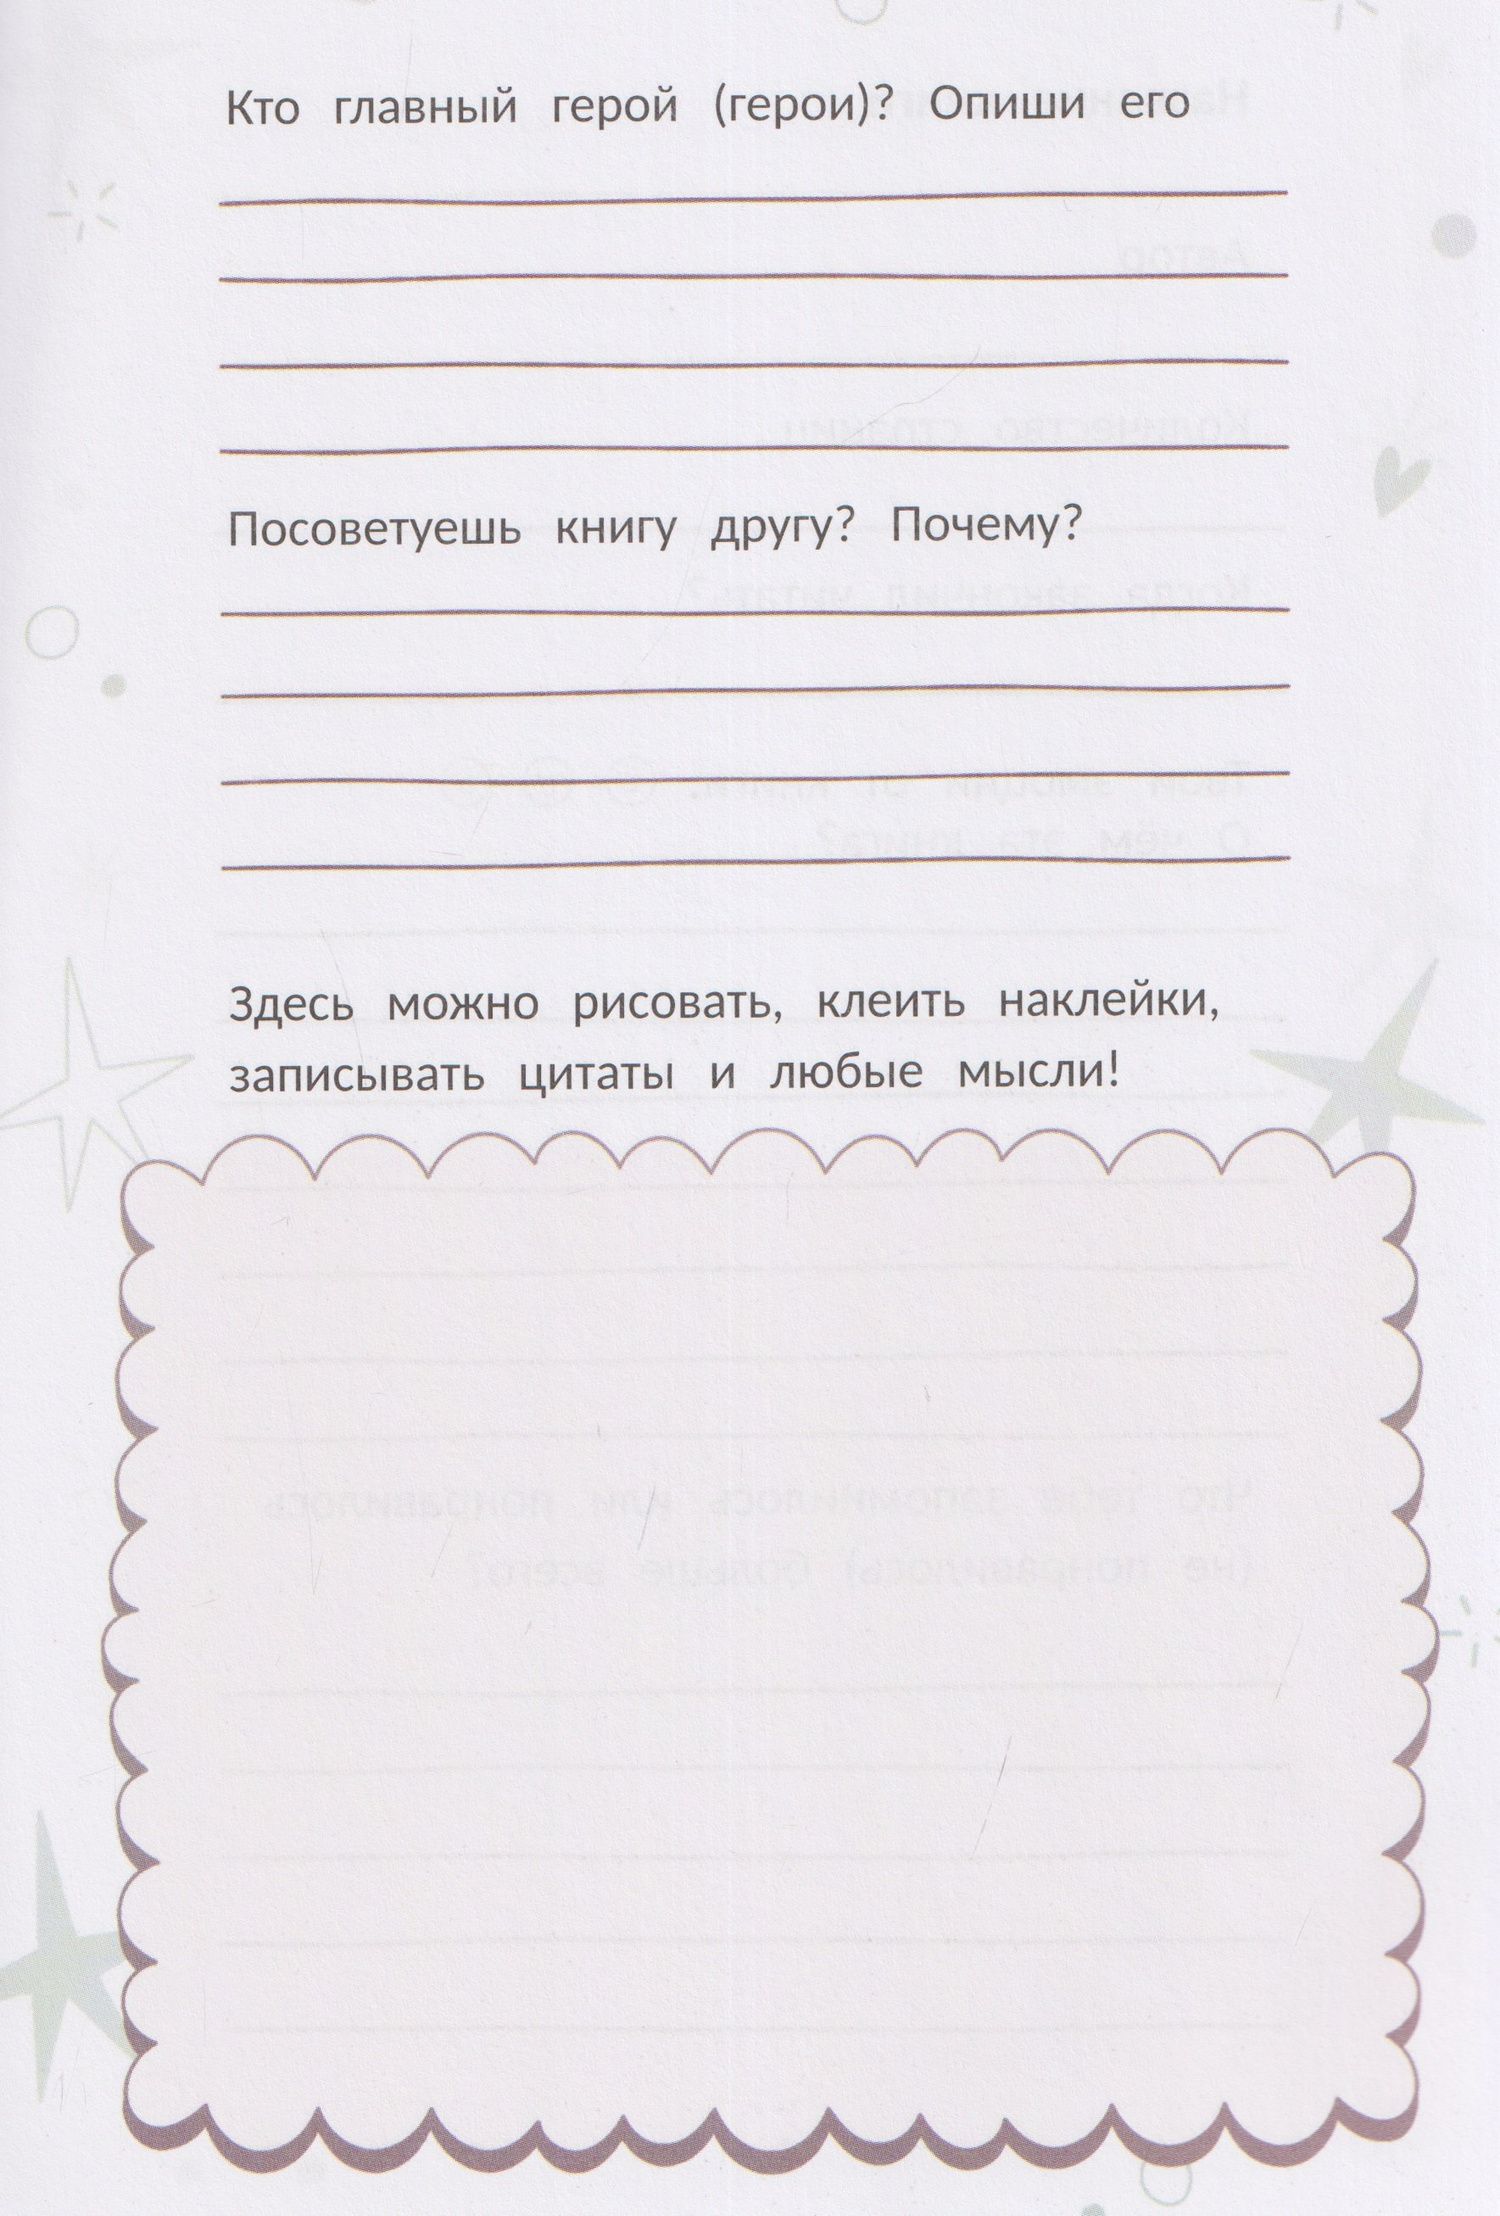 Кто главный герой (герои)? Опиши его
Посоветуешь книгу другу? Почему?
Здесь можно рисовать, клеить наклейки,
записывать цитаты и любые мысли!